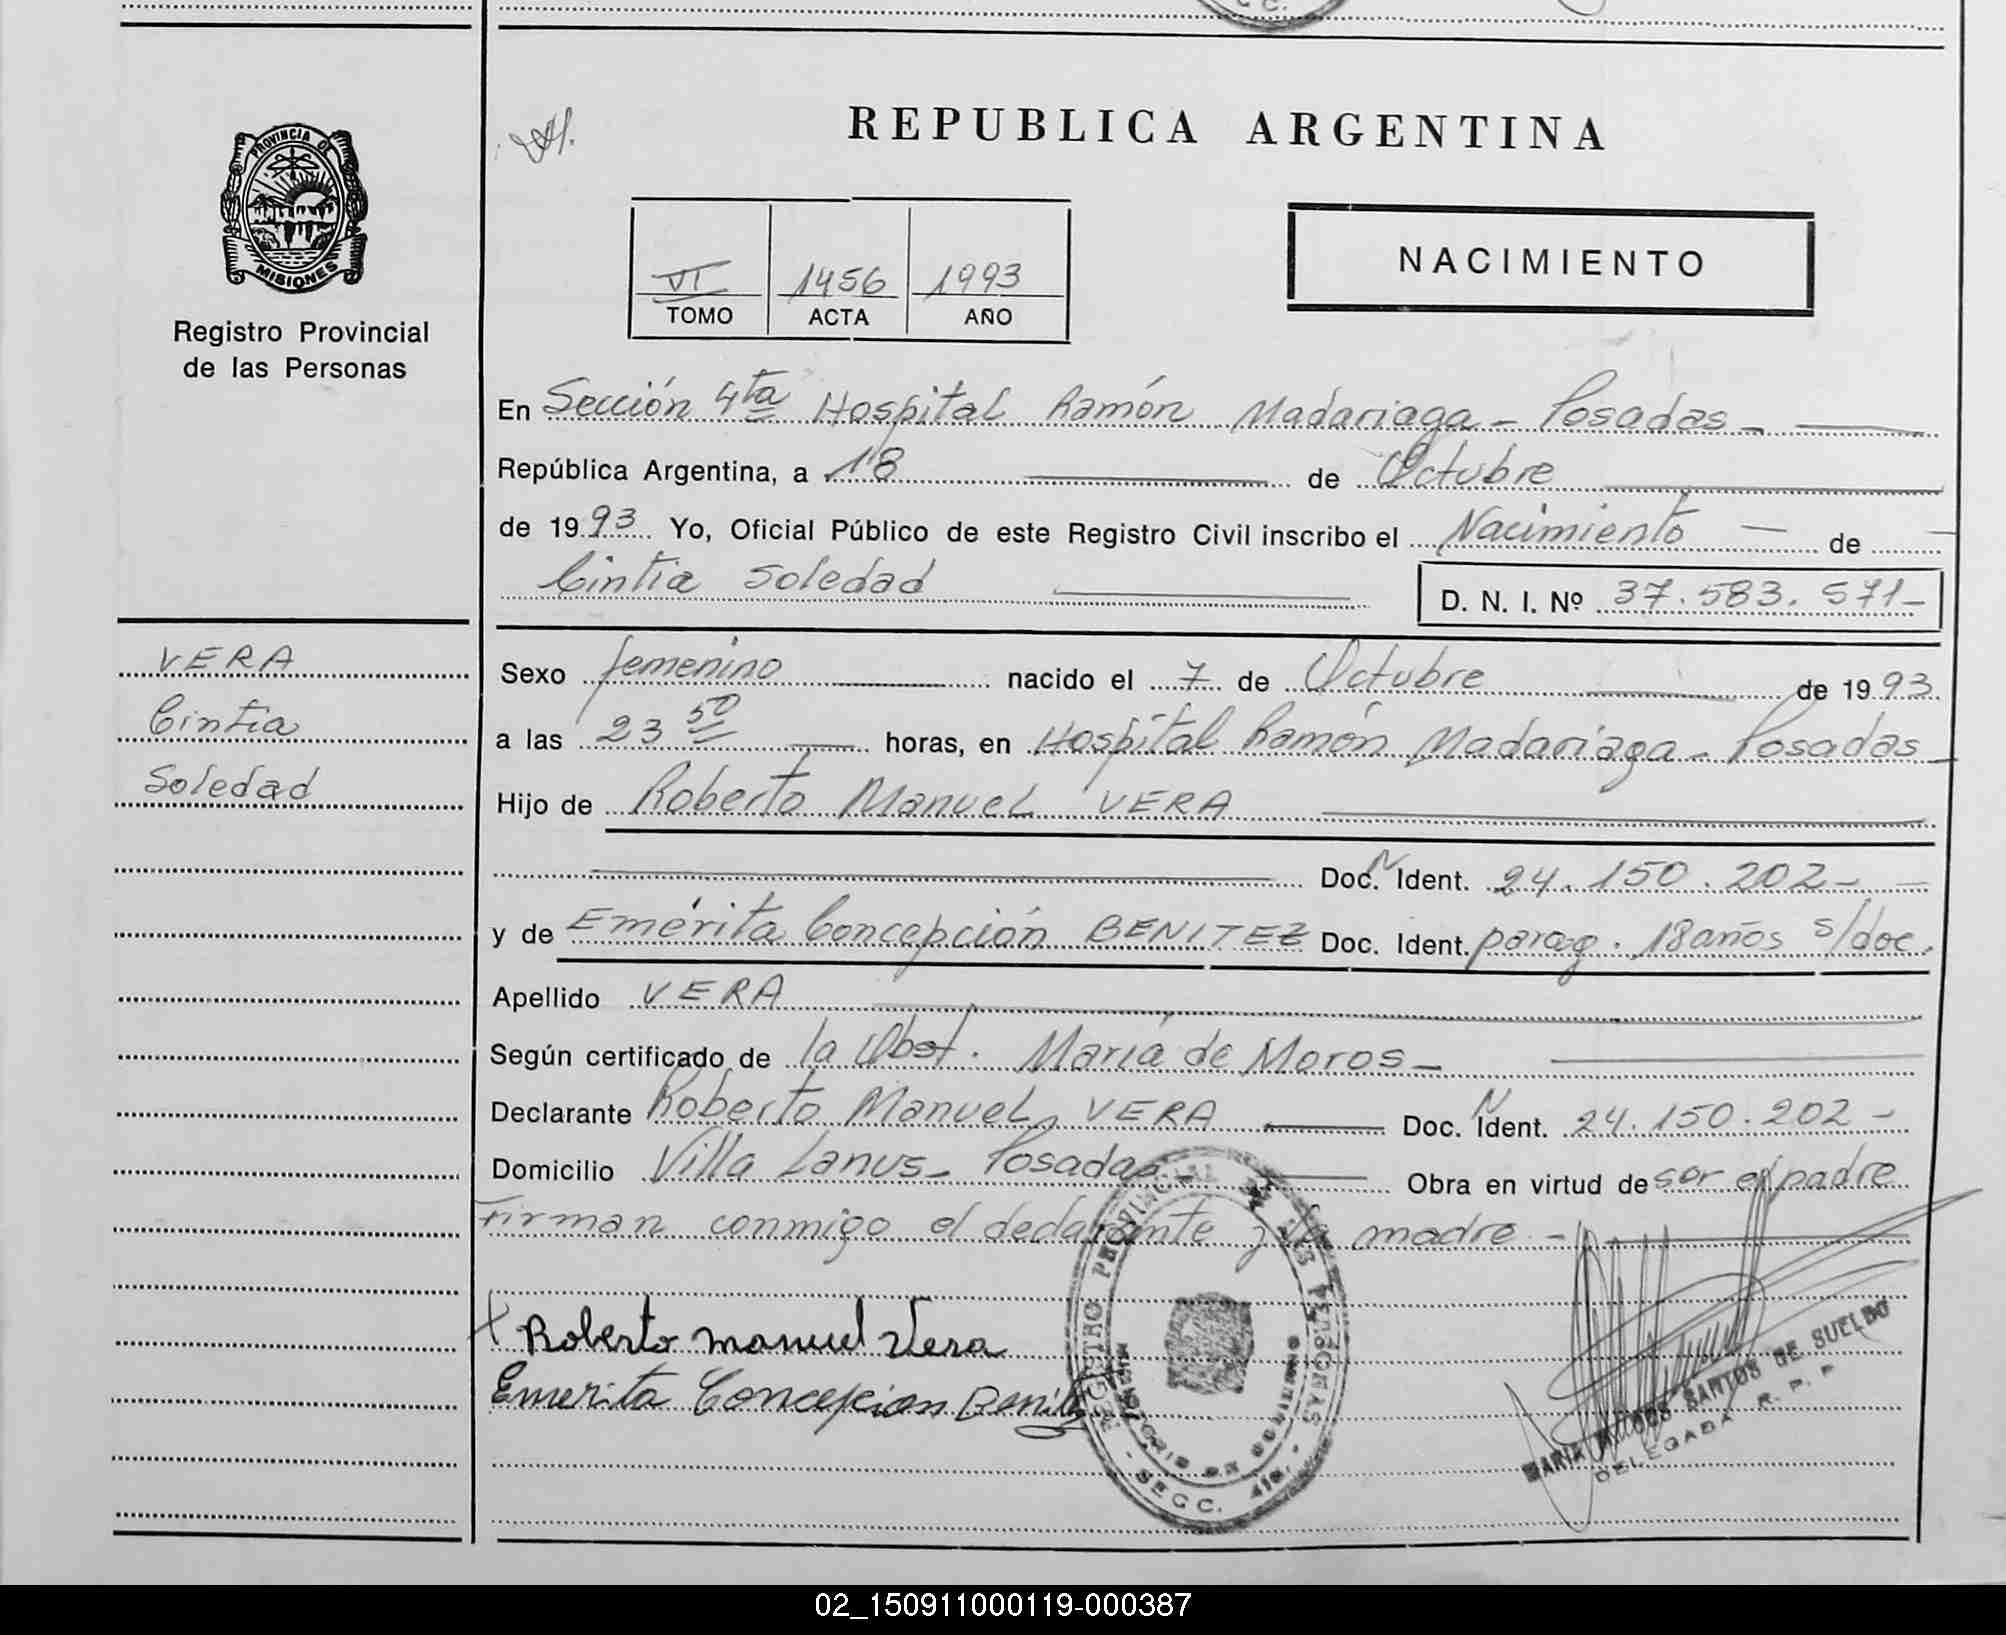 PROVINCIA DE
MISIONES
Registro Provincial
de las Personas
VERA
Cintia
Soledad
REPUBLICA ARGENTINA
VI 1456 1993
TOMO ACTA AÑO
NACIMIENTO
En Sección 4ta Hospital Ramón Madariaga - Posadas -
República Argentina, a 18 de Octubre
de 1993 Yo, Oficial Público de este Registro Civil inscribo el Nacimiento de
Cintia Soledad D. N. I. Nº 37.583.571-
Sexo femenino nacido el 7 de Octubre de 1993
a las 23 50 horas, en Hospital Ramón Madariaga - Posadas -
Hijo de Roberto Manuel VERA
Doc. N Ident. 24.150.202-
y de Emérita Concepción BENITEZ Doc. Ident. parag. 18 años s/doc.
Apellido VERA
Según certificado de la Obst. María de Moros -
Declarante Roberto Manuel VERA Doc. N Ident. 24.150.202-
Domicilio Villa Lanus - Posadas Obra en virtud de ser el padre
Firman conmigo el declarante y la madre -
Roberto Manuel Vera
Emerita Concepcion Benitez
REGISTRO PROVINCIAL DE LAS PERSONAS
MINISTERIO DE GOBIERNO
- SECC. 4ta. -
MARIA SANTOS DE SUELDO
DELEGADA R. P. P
02_150911000119-000387